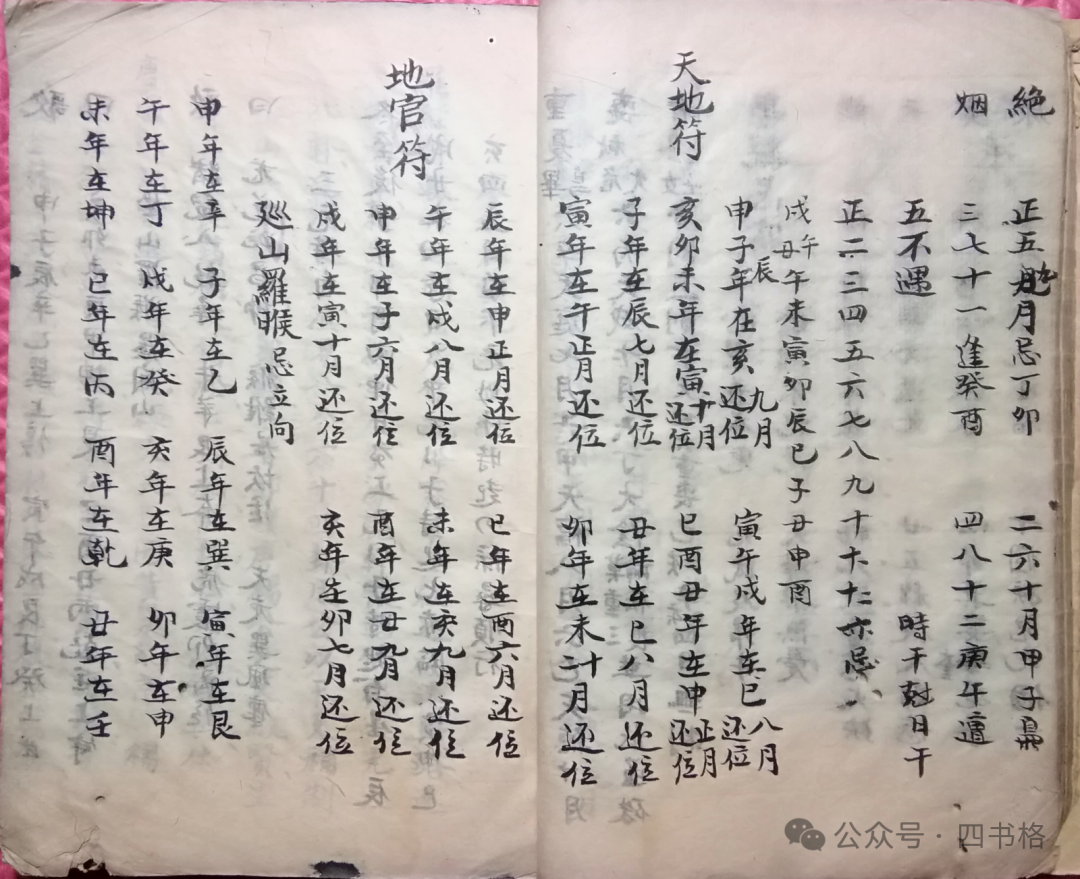 絕 正五九月忌丁卯 二六十月甲子鼠
烟 三七十一逢癸酉 四八十二庚午遭
五不遇 時干尅日干
正二三四五六七八九十十十二亦忌
戌丑午午未寅卯辰巳子丑申酉
天地符 申子辰年在亥九月还位 寅午戌年在巳八月还位
亥卯未年在寅十月还位 巳酉丑年在申正月还位
子年在辰七月还位 丑年在巳八月还位
寅年在午正月还位 卯年在未二十月还位
地官符 辰年在申正月还位 巳年在酉六月还位
午年在戌八月还位 未年在亥九月还位
申年在子六月还位 酉年在丑九月还位
戌年在寅十月还位 亥年在卯七月还位
廵山羅睺忌立向
申年在辛 子年在乙 辰年在巽 寅年在艮
午年在丁 戌年在癸 亥年在庚 卯年在申
未年在坤 巳年在丙 酉年在乾 丑年在壬
公众号·四书格